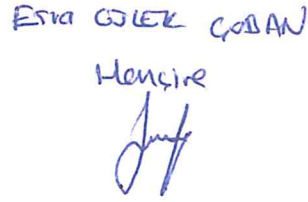 Esra ÇİLEK ÇOBAN
Hemşire